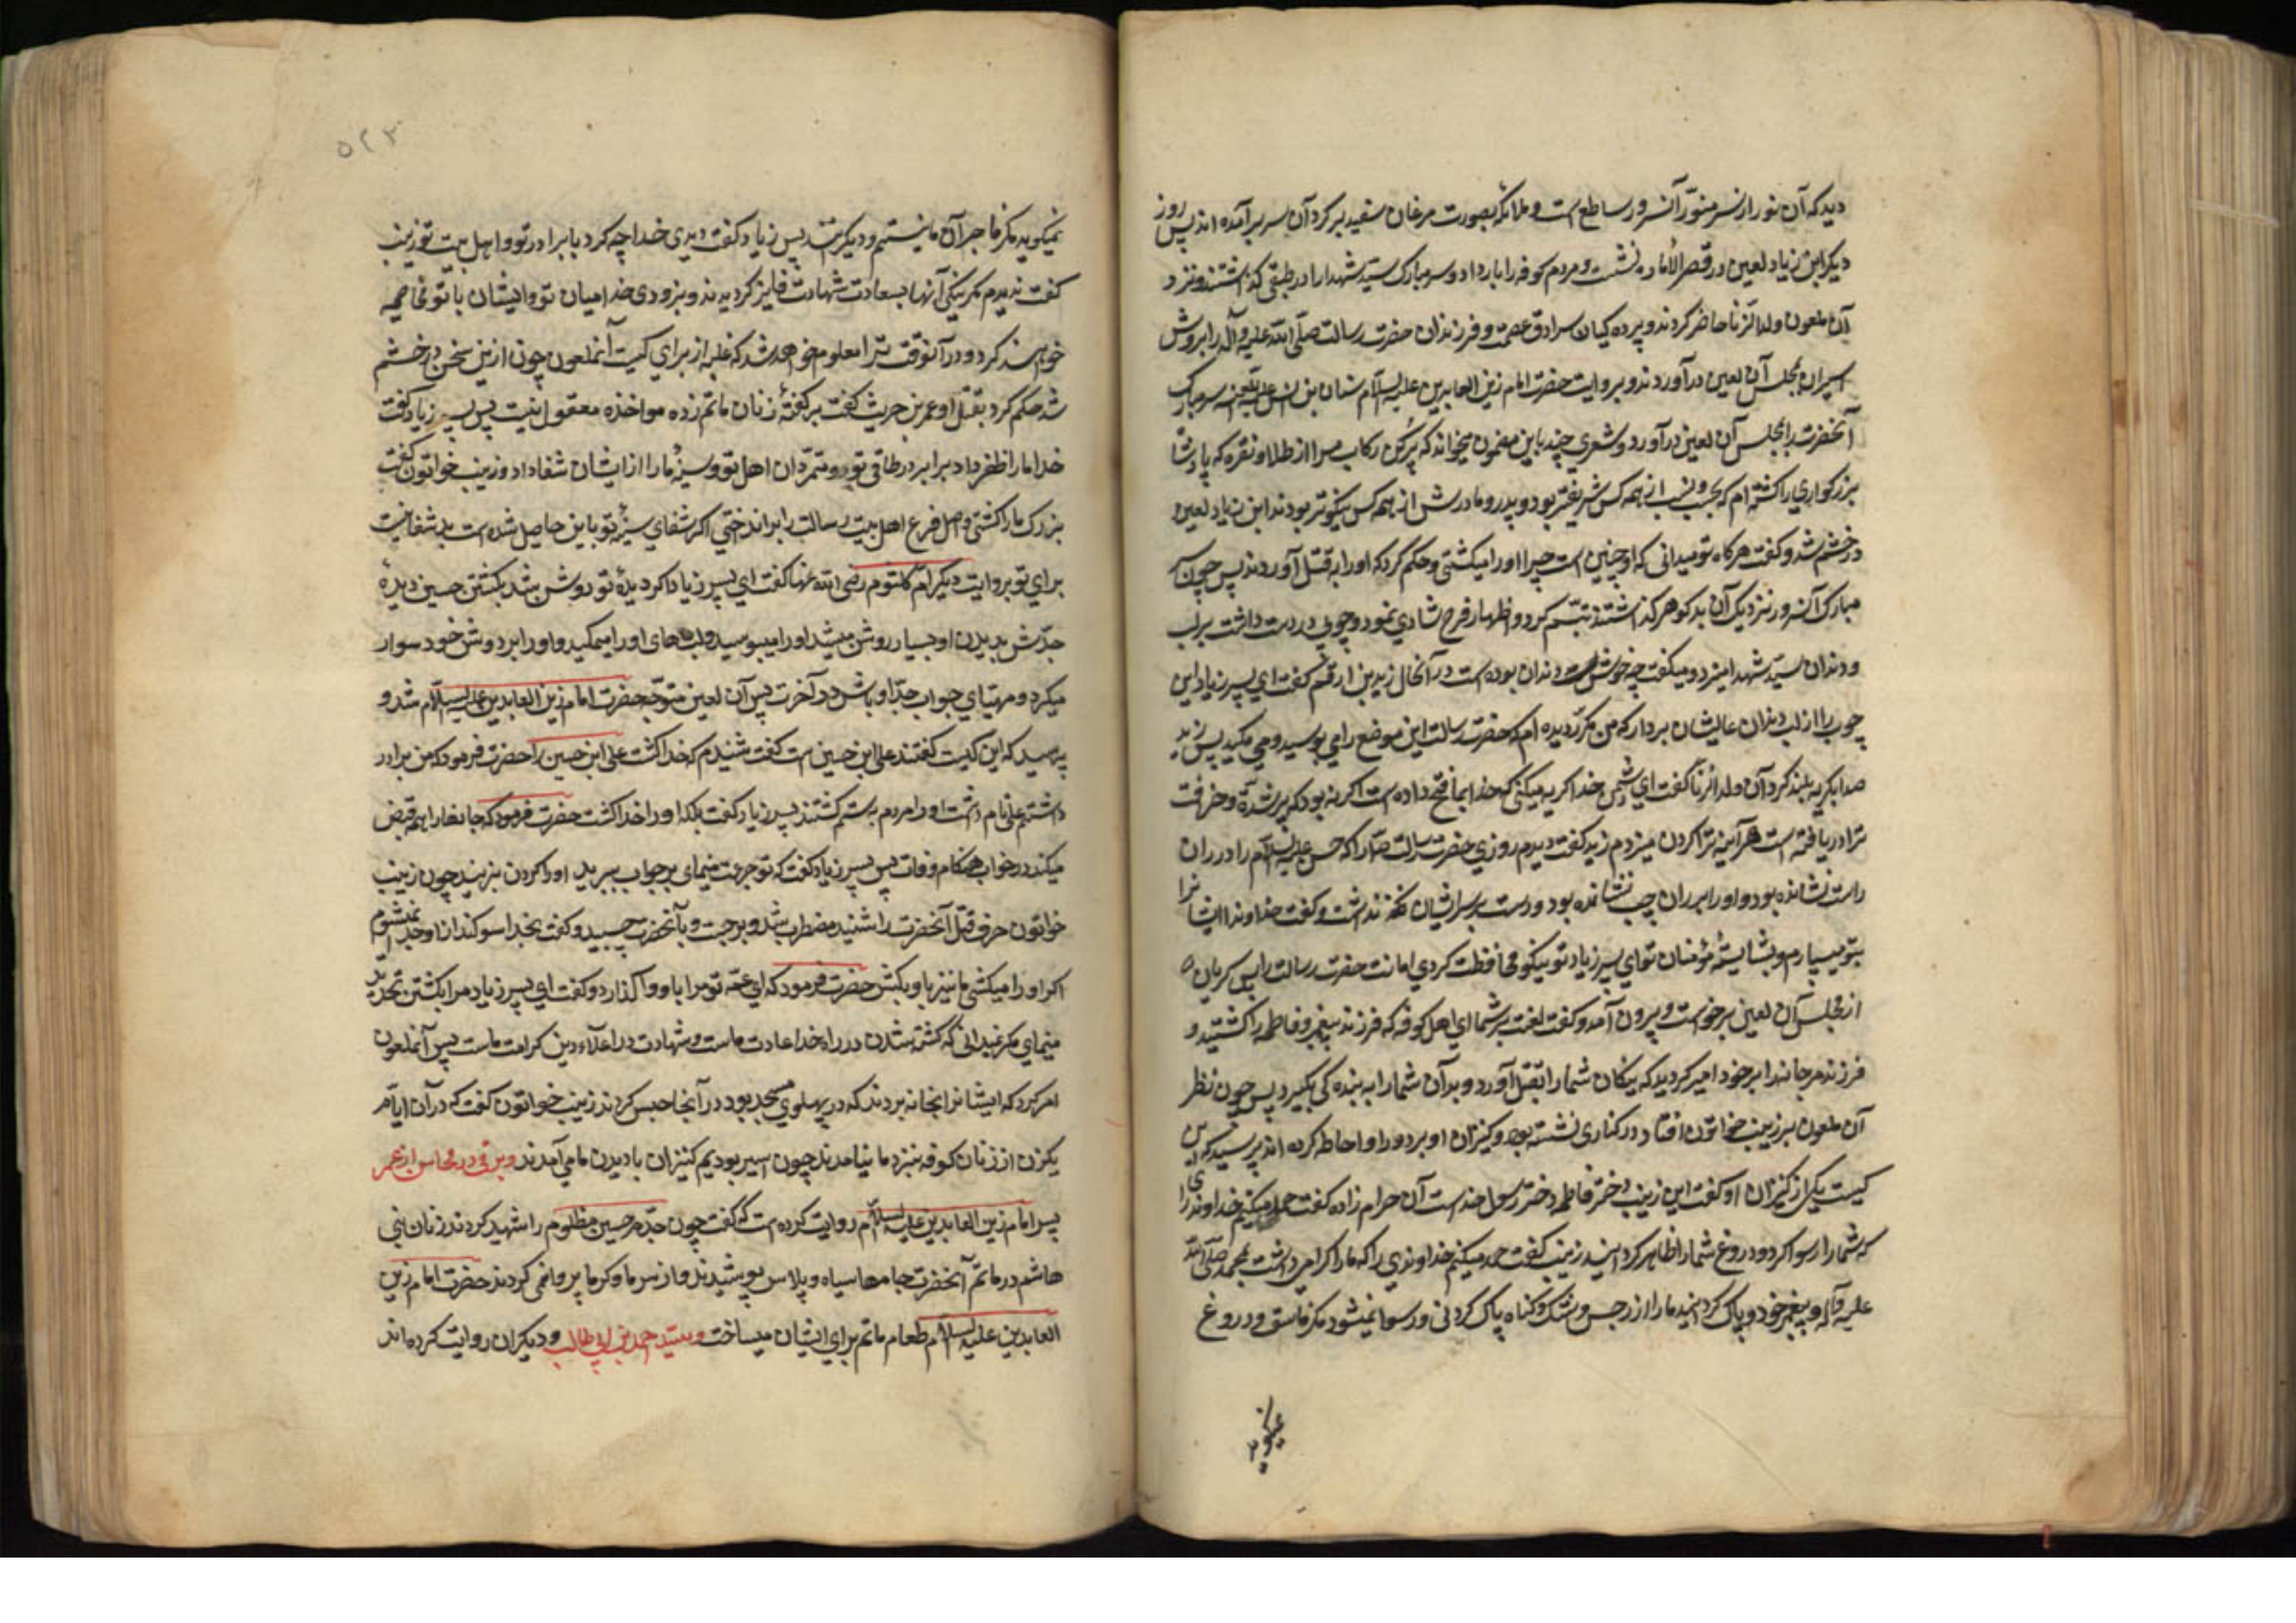 دید که آن نور از سر منوّر آنسرور ساطع است و ملائکه بصورت مرغان سفید بر کرد آن سر برآمده اند پس روز
دیکر ابن زیاد لعین در قصر الاماره نشست و مردم کوفه را بار داد و سر مبارک سیّد شهدا را در طبقی کذاشتند و نزد
آن ملعون ولد الزنا حاضر کردند و پرده کیان سرادق عصمت و فرزندان حضرت رسالت صلّی الله علیه و آله را بروش
اسیران بمجلس آن لعین درآوردند و بروایت حضرت امام زین العابدین علیه السلام سنان بن انس علیه اللعنه سر مبارک
آنحضرت را بمجلس آن لعین درآورد و شعری چند باین مضمون میخواند که پر کن رکاب مرا از طلا و نقره که پادشاه
بزرکواری را کشته ام که بحسب و نسب از همه کس شریفتر بود و پدر و مادرش از همه کس نیکوتر بودند ابن زیاد لعین
در خشم شد و کفت هرکاه تو میدانی که او چنین است چرا او را میکشتی و حکم کرد که او را بقتل آوردند پس چون سر
مبارک آنسرور نزدیک آن بدکوهر کذاشتند تبسّم کرد و اظهار فرح و شادی نمود و چوبی در دست داشت بر لب
و دندان سیّد شهدا میزد و میکفت چه خوش دندان بوده است در آنحال زید بن ارقم کفت ای پسر زیاد این
چوب را از لب و دندان عالیشان بردار که من مکرّر دیده ام که حضرت رسالت این موضع را می بوسید و می مکید پس زید
صدا بکریه بلند کرد آن ولد الزنا کفت ای دشمن خدا کریه میکنی که خدا بما فتح داده است اکر نه بود که پیر شدهٔ و خرافت
ترا دریافته است هرآینه ترا کردن میزدم زید کفت دیدم روزی حضرت رسالت ص را که حسن علیه السلام را در ران
راست نشانده بود و او را بر ران چپ نشانده بود و دست بر سر ایشان کذاشت و کفت خداوندا ایشانرا
بتو میسپارم و بشایستهٔ مؤمنان تو ای پسر زیاد تو نیکو محافظت کردی امانت حضرت رسالت را پس کریان
از مجلس آن لعین برخواست و بیرون آمد و کفت لعنت بر شما ای اهل کوفه که فرزند پیغمبر و فاطمه را کشتید و
فرزند مرجانه را بر خود امیر کردید که نیکان شما را بقتل آورد و بدان شما را به بنده کی بکیرد پس چون نظر
آن ملعون بر زینب خواتون افتاد در کناری نشسته بود و کنیزان او بر دور او احاطه کرده اند پرسید که این
کیست یکی از کنیزان او کفت این زینب دختر فاطمه دختر رسول خداست آن حرام زاده کفت حمد میکنم خداوندی را
که شما را رسوا کرد و دروغ شما را ظاهر کردانید زینب کفت حمد میکنم خداوندی را که ما را کرامی داشت بمحمد صلّی الله
علیه و آله پیغمبر خود و پاک کردانید ما را از رجس و شک و کناه پاک کردنی و رسوا نمیشود مکر فاسق و دروغ
نمیکوید
۵۲۳
نمیکوید مکر فاجر و آن ما نیستیم و دیکرانند پس زیاد کفت دیدی خدا چه کرد با برادر تو و اهل بیت تو زینب
کفت ندیدم مکر نیکی آنها بسعادت شهادت فایز کردیدند و بزودی خدا میان تو و ایشان با تو مخاصمه
خواهند کرد و در آنوقت ترا معلوم خواهد شد که غلبه از برای کیست آنملعون چون ازین سخن در خشم
شد حکم کرد بقتل او عمر بن حریث کفت بر کفتهٔ زنان ماتم زده مواخذه معقول نیست پس پسر زیاد کفت
خدا ما را ظفر داد بر برادر طاقی تو و متمرّدان اهل تو و سینهٔ ما را از ایشان شفا داد و زینب خواتون کفت
بزرک ما را کشتی و اصل و فرع اهل بیت رسالت را برانداختی اکر شفای سینهٔ تو باین حاصل شده است بد شفائیست
برای تو بروایت دیکر ام کلثوم رضی الله عنها کفت ای پسر زیاد اکر دیدهٔ تو روشن شد بکشتن حسین دیدهٔ
جدّش بدیدن او بسیار روشن میشد او را میبوسید و لب های او را میمکید و او را بر دوش خود سوار
میکرد و مهیّای جواب جدّ او باش در آخرت پس آن لعین متوجّه حضرت امام زین العابدین علیه السلام شد و
پرسید که این کیست کفتند علی ابن حسین است کفت شنیدم که خدا کشت علی ابن حسین را حضرت فرمود که من برادر
داشتم علی نام داشت او را مردم بستم کشتند پسر زیاد کفت بلکه او را خدا کشت حضرت فرمود که جانها را همه قبض
میکند در خواب و هنکام وفات پس پسر زیاد کفت که تو جرئت مینمای بر جواب ببرید او را کردن بزنید چون زینب
خواتون حرف قتل آنحضرت را شنید مضطرب شد و برجست و بآنحضرت چسبید و کفت بخدا سوکند از او جدا نمیشوم
اکر او را میکشی ما نیز با او بکش حضرت فرمود که ای عمّه تو مرا با او واکذار و کفت ای پسر زیاد مرا بکشتن تهدید
مینمای مکر نمیدانی که کشته شدن در راه خدا عادت ماست و شهادت در اعلاء دین کرامت ماست پس آنملعون
امر کرد که ایشانرا بخانه بردند که در پهلوی مسجد بود در آنجا حبس کردند زینب خواتون کفت که در آن ایّام
یکزن از زنان کوفه بنزد ما نیامدند چون اسیر بودیم کنیزان بادیدن ما می آمدند و برقی در محاسن از عمر
پسر امام زین العابدین علیه السلام روایت کرده است که کفت چون جدّم حسین مظلوم را شهید کردند زنان بنی
هاشم در ماتم آنحضرت جامها سیاه و پلاس پوشیدند و از سرما و کرما پروا نمی کردند حضرت امام زین
العابدین علیه السلام طعام ماتم برای ایشان میساخت و سیّد محمد بن ابی طالب و دیکران روایت کرده اند